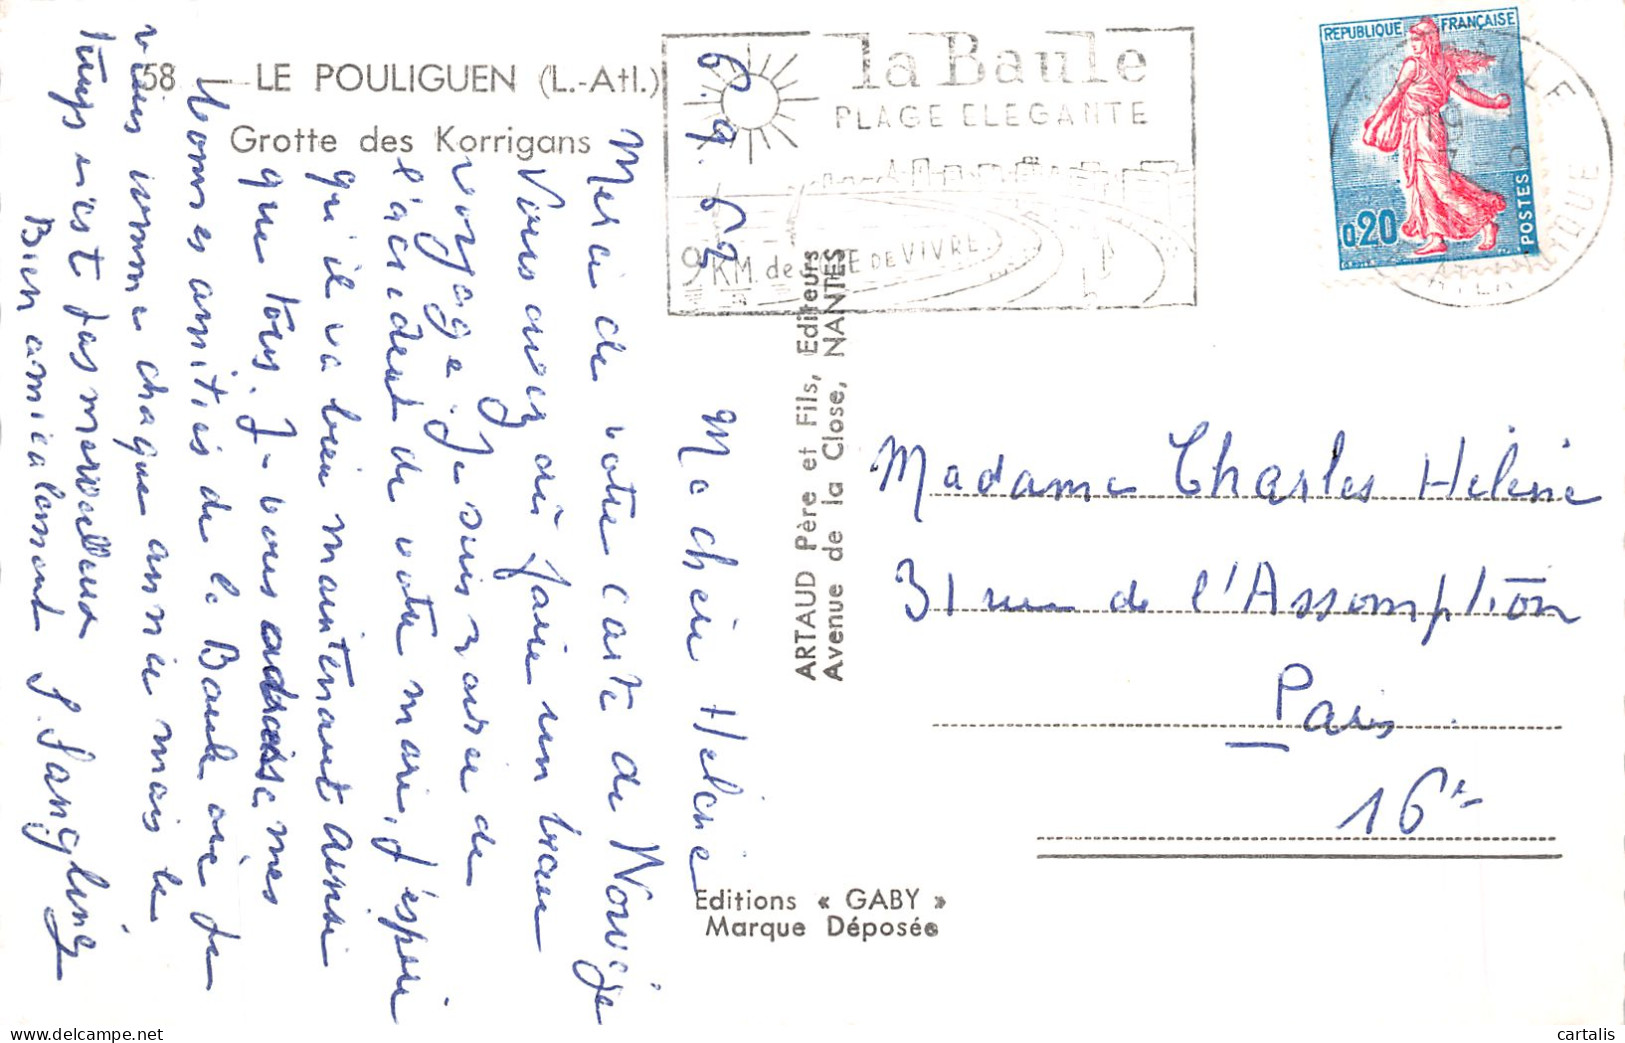 58 — LE POULIGUEN (L.-Atl.)
Grotte des Korrigans
la Baule
PLAGE ELEGANTE
9 KM. de JOIE DE VIVRE
REPUBLIQUE FRANÇAISE
0,20
POSTES
ARTAUD Père et Fils, Editeurs
Avenue de la Close, NANTES
Editions « GABY »
Marque Déposée
Ma chère Hélène
Merci de votre carte de Norvège
Vous avez dû faire un beau
voyage. Je suis navrée de
l'accident de votre mari, j'espère
qu'il va bien maintenant ainsi
que tous. Je vous adresse mes
bonnes amitiés de la Baule où je
viens comme chaque année mais le
temps n'est pas merveilleux
Bien amicalement
Madame Charles Hélène
31 rue de l'Assomption
Paris
16e
cartalis